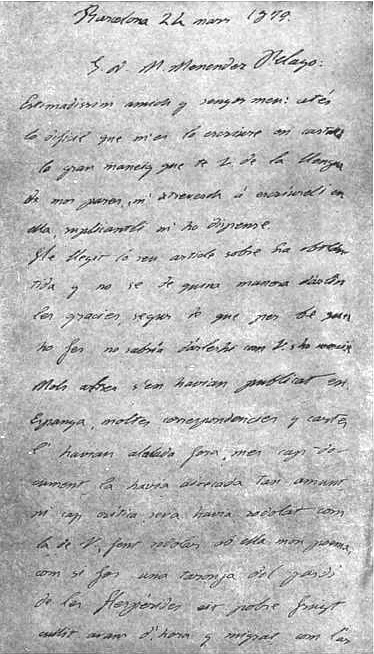 Barcelona 24 mars 1879.
S. D. M. Menendez Pelayo:
Estimadissim amich y senyor meu: atés
lo dificil que m'es lo escriure en
lo gran maneig que te V. de la llengua
de mos pares, m' á escriureli en
ella, suplicantli m'ho dispense.
He llegit lo seu article sobre
tida y no se de quina manera dárlin
les gracies, segur que per bé que
ho fes no sabria com V. s'ho mereix
Molts altres s'en havian publicat en
Espanya, moltes correspondencies y cartes
l'havian alabada fora, mes cap do-
cument la havia aixecada tan amunt
ni cap critica seva havia rodolat com
la de V., fent rodolar ab ella mon poema,
com si fos una taronja del jardi
de les Hespérides eix pobre fruyt
cullit avans d'hora y migrat com